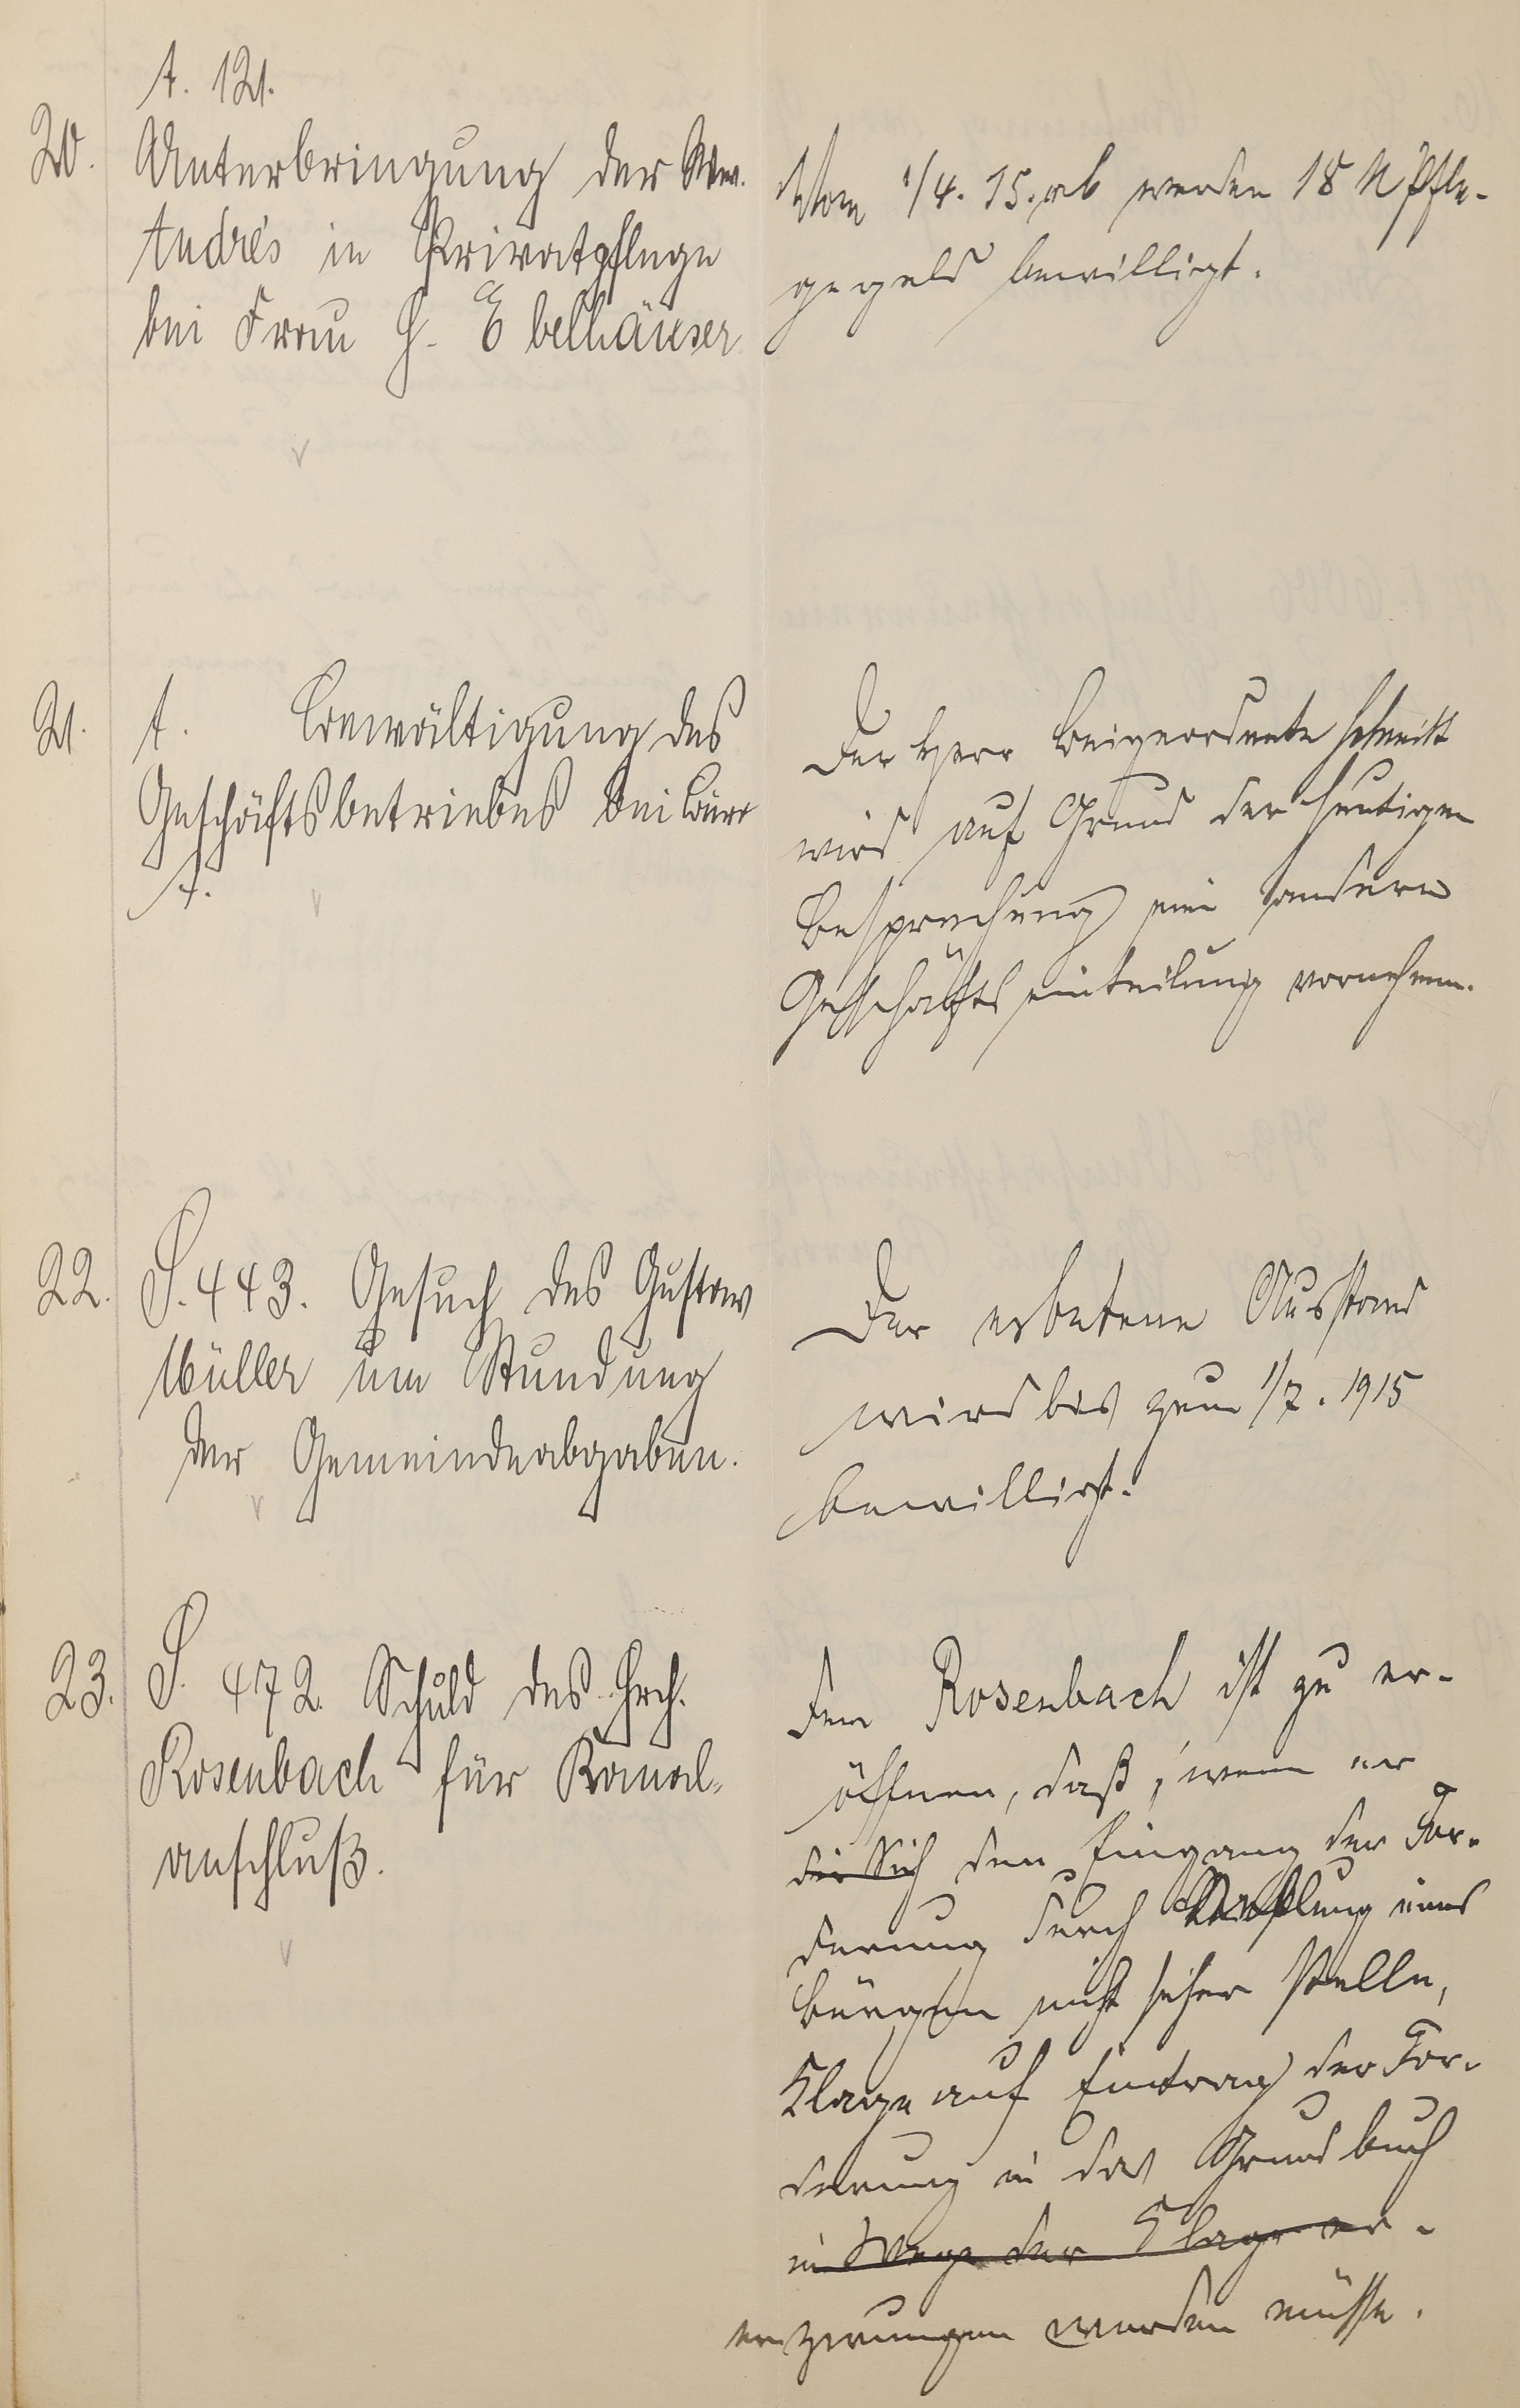 A. 121.
20. Unterbringung der Ww.
Andrés in Privatpflege
bei Frau H. Ebelhäuser
Vom 1/4. 15. ab werden 18 M Pfle-
gegeld bewilligt.
21. A. Bewältigung des
Geschäftsbetriebes bei Büro
A.
Der Herr Beigeordnete Schmitt
wird auf Grund der heutigen
Besprechung eine andere
Geschäftseinteilung vornehmen.
22. S. 443. Gesuch des Gustav
Müller um Stundung
der Gemeindeabgaben.
Der erbetene Ausstand
wird bis zum 1/7. 1915
bewilligt.
23. S. 472. Schuld des Hrch.
Rosenbach für Kanal-
anschluß.
Dem Rosenbach ist zu er-
öffnen, daß, wenn er
den Eingang der For-
derung durch Stellung eines
Bürgen nicht sicher stelle,
Klage auf Eintrag der For-
derung in das Grundbuch
im Wege der Klage er-
erzwungen werden müsse.